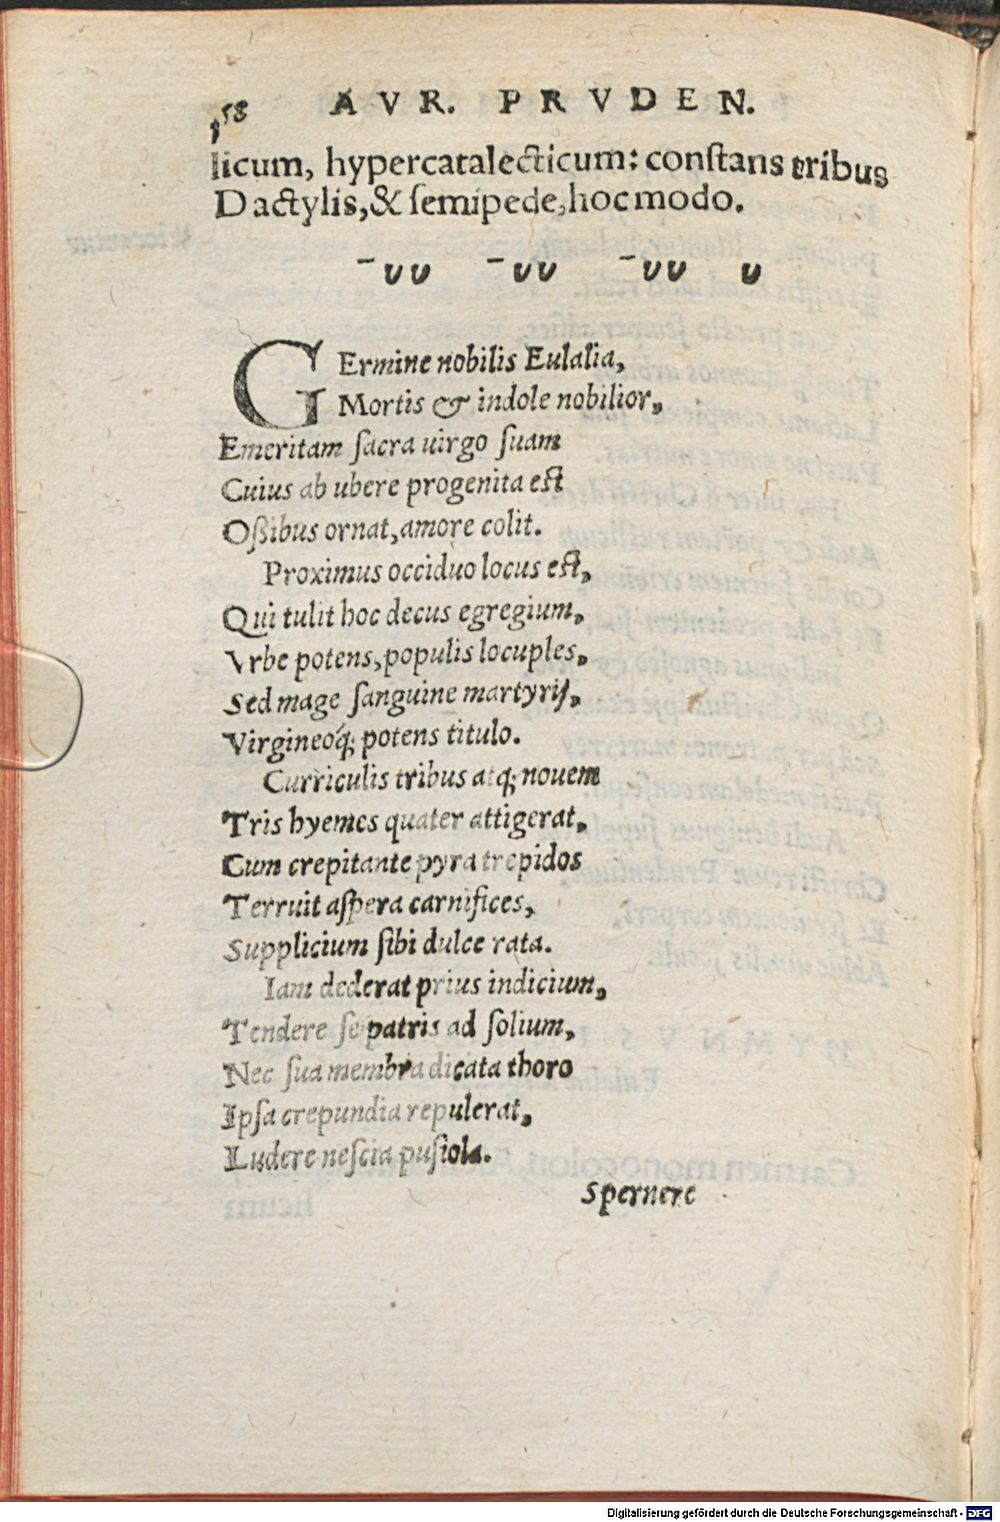 158 AVR. PRVDEN.
licum, hypercatalecticum: constans tribus
Dactylis, & semipede, hoc modo.
¯υυ ¯υυ ¯υυ υ
GErmine nobilis Eulalia,
Mortis & indole nobilior,
Emeritam sacra uirgo suam
Cuius ab ubere progenita est
Oßibus ornat, amore colit.
Proximus occiduo locus est,
Qui tulit hoc decus egregium,
Vrbe potens, populis locuples,
Sed mage sanguine martyrij,
Virgineóq; potens titulo.
Curriculis tribus atq; nouem
Tris hyemes quater attigerat,
Cum crepitante pyra trepidos
Terruit aspera carnifices,
Supplicium sibi dulce rata.
Iam dederat prius indicium,
Tendere se patris ad solium,
Nec sua membra dicata thoro
Ipsa crepundia repulerat,
Ludere nescia pusiola.
Spernere
Digitalisierung gefördert durch die Deutsche Forschungsgemeinschaft - DFG